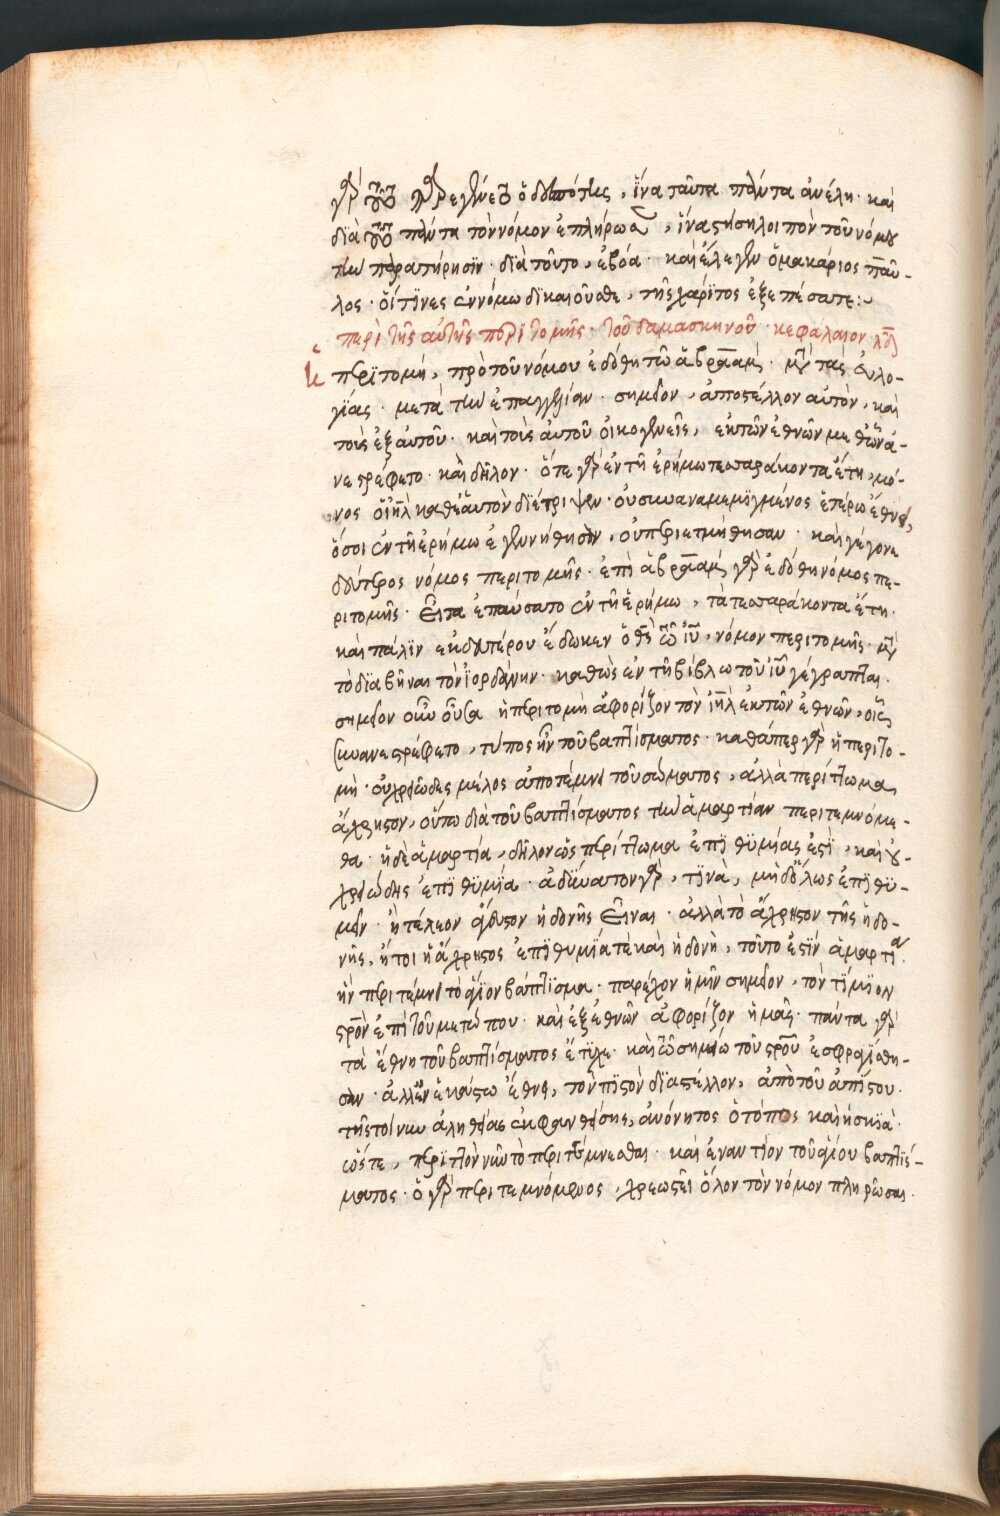 γὰρ τοῦτο παρεγένετο ὁ δεσπότης, ἵνα ταῦτα πάντα ἀνέλη· καὶ
διὰ τοῦτο πάντα τὸν νόμον ἐπλήρωσεν, ἵνα στήση λοιπὸν τοῦ νόμου
τὴν παρατήρησϊν· δϊὰ τοῦτο, ἐβόα· καὶ ἔλεγεν ὁ μακάριος παῦ-
λος· οἵ τϊνες ἐν νόμω δϊκαιοῦσθε, τῆς χάρϊτος ἐξεπέσατε:~
περὶ τῆς αὐτῆς περϊτομῆς· τοῦ δαμασκηνοῦ· κεφάλαιον
περϊτομή, πρὸ τοῦ νόμου ἐδόθη τῶ ἀβραὰμ· μετὰ τὰς εὐλο-
γίας· μετὰ τὴν ἐπαγγελίαν· σημεῖον, ἀποστέλλον αὐτὸν, καὶ
τοὺς ἐξ αὐτοῦ· καὶ τοὺς αὐτοῦ οἰκογενεῖς, ἐκ τῶν ἐθνῶν μεθ᾽ ὧν ἀ-
νεστρέφετο· καὶ δῆλον· ὅτε γὰρ ἐν τῆ ἐρήμω τεσσαράκοντα ἔτη, μό-
νος ὁ ἰηλ καθεαυτὸν διέτριψεν· οὐ συναναμεμϊγμένος ἑτέρω ἔθνει,
ὅσοι ἐν τῆ ἐρήμω ἐγεννήθησαν, οὐ περιετμήθησαν· καὶ γέγονε
δεύτερος νόμος περιτομῆς· ἐπὶ ἀβραὰμ γὰρ ἐδόθη νόμος πε-
ριτομῆς· εἶτα ἐπαύσατο ἐν τῆ ἐρήμω, τὰ τεσσαράκοντα ἔτη·
καὶ πάλϊν ἐκ δευτέρου ἔδωκεν ὁ θς τῶ ιυ, νόμον περιτομῆς· μετὰ
τὸ δϊαβῆναι τὸν ϊορδάνην· καθὼς ἐν τῆ βίβλω τοῦ ιυ γέγραπται.
σημεῖον οὖν οὖσα ἡ περιτομὴ ἀφορίζον τὸν ιηλ ἐκ τῶν ἐθνῶν, οἷς
συνανεστρέφετο, τύπος ἦν τοῦ βαπτίσματος· καθάπερ γὰρ ἡ περιτο-
μὴ· οὐ χρειῶδες μέλος ἀποτέμνει τοῦ σώματος, ἀλλὰ περίττωμα
ἄχρηστον, οὕτω διὰ τοῦ βαπτίσματος τὴν ἁμαρτίαν περιτεμνόμε-
θα· ἡ δὲ ἁμαρτία, δῆλον ὡς περίττωμα ἐπϊθϋμίας ἐστὶ, καὶ οὐ
χρειώδης ἐπϊθϋμία· ἀδύνατον γὰρ, τϊνὰ, μὴδόλως ἐπϊθϋ-
μεῖν· ἢ τέλεον ἄγευστον ἡδονῆς εἶναι· ἀλλὰ τὸ ἄχρηστον τῆς ἡδο-
νῆς, ἤτοι ἡ ἄχρηστος ἐπϊθυμία τὲ καὶ ἡδονὴ, τοῦτο ἐστϊν ἁμαρτία·
ἣν περιτέμνει τὸ ἅγϊον βάπτϊσμα· παρέχον ἡμῖν σημεῖον, τὸν τίμϊον
στρὸν ἐπὶ τοῦ μετώπου· καὶ ἐξ ἐθνῶν ἀφορίζον ἡμᾶς· πάντα γὰρ
τὰ ἔθνη τοῦ βαπτίσματος ἔτϋχε· καὶ τῶ σημείω τοῦ στροῦ ἐσφραγίσθη-
σαν· ἀλλ᾽ ἐν ἑκάστω ἔθνει, τὸν πϊστὸν δϊαστέλλον, ἀπὸ τοῦ ἀπίστου·
τῆς τοίνυν ἀληθείας ἐκφανθείσης, ἀνόνητος ὁ τύπος καὶ ἡ σκϊὰ·
ὥστε, περϊττὸν νῦν τὸ περιτέμνεσθαι· καὶ ἐναντίον τοῦ ἁγίου βαπτίσ-
ματος· ὁ γὰρ περιτεμνόμενος, χρεωστεῖ ὅλον τὸν νόμον πληρῶσαι.